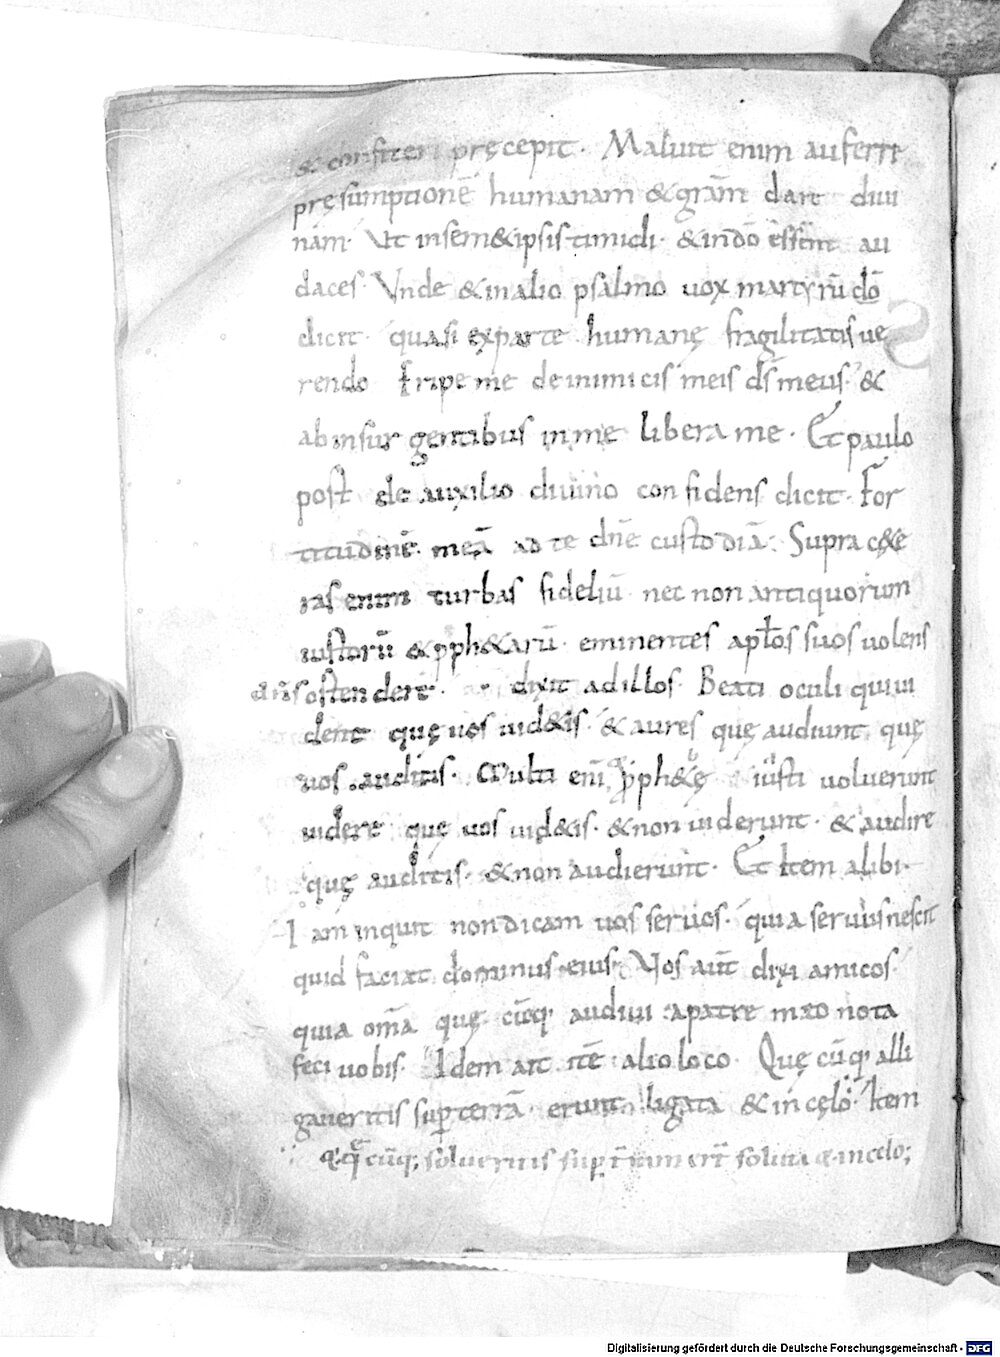 & confiteri pręcepit. Maluit enim auferri
pręsumptionē humanam & gr̄am dari diui
nam. Ut in sem&ipsis timidi. & in dō essent au
daces. Unde & in alio psalmo uox martyrū dō
dicit. quasi ex parte humanę fragilitatis ue
rendo Eripe me de inimicis meis ds̄ meus. &
ab insurgentibus in me libera me. Et paulo
post de auxilio diuino confidens dicit. For
titudinē meā ad te dn̄e custodiā. Supra c&e
ras enim turbas fideliū nec non antiquorum
iustorū & pph&arū. eminentes apl̄os suos uolens
dn̄s ostendere. dixit ad illos. Beati oculi qui ui
dent quę uos uid&is. & aures quę audiunt. quę
uos auditis. Multi enī proph&ę iusti uoluerunt
uidere quę uos uid&is. & non uiderunt. & audire
quę auditis. & non audierunt. Et item alibi.
Iam inquit non dicam uos seruos. quia seruus nescit
quid faciat dominus eius. Uos aut̄ dixi amicos.
quia om̄a quę cūq; audiui a patre meo nota
feci uobis. Idem ait itē alio loco. Quę cūq; alli
gaueritis sup terrā. erunt ligata & in cęlo. Item
& q̄ cūq; solueritis sup t̄ram er̄t soluta & in celo;
Digitalisierung gefördert durch die Deutsche Forschungsgemeinschaft - DFG